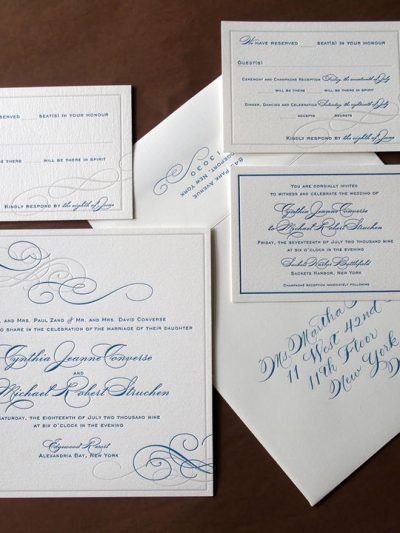 We have reserved seat(s) in your honour
Guest(s)
Ceremony and Champagne Reception Friday, the seventeenth of July
will be there will be there in spirit
Dinner, Dancing and Celebration Saturday, the eighteenth of July
accepts regrets
Kindly respond by the eighth of June
seat(s) in your honour
will be there in spirit
Kindly respond by the eighth of June
Park Avenue
New York
13030
You are cordially invited
to witness and celebrate the wedding of
Cynthia Jeanne Converse
to Michael Robert Struchen
Friday, the seventeenth of July two thousand nine
at six o'clock in the evening
Sackets Harbor Battlefield
Sackets Harbor, New York
Champagne reception immediately following
Mr. and Mrs. David Converse
to share in the celebration of the marriage of their daughter
Cynthia Jeanne Converse
Michael Robert Struchen
Saturday, the eighteenth of July two thousand nine
at six o'clock in the evening
Edgewood Resort
Alexandria Bay, New York
Ms. Martha
11 West 42nd
11th Floor
New York